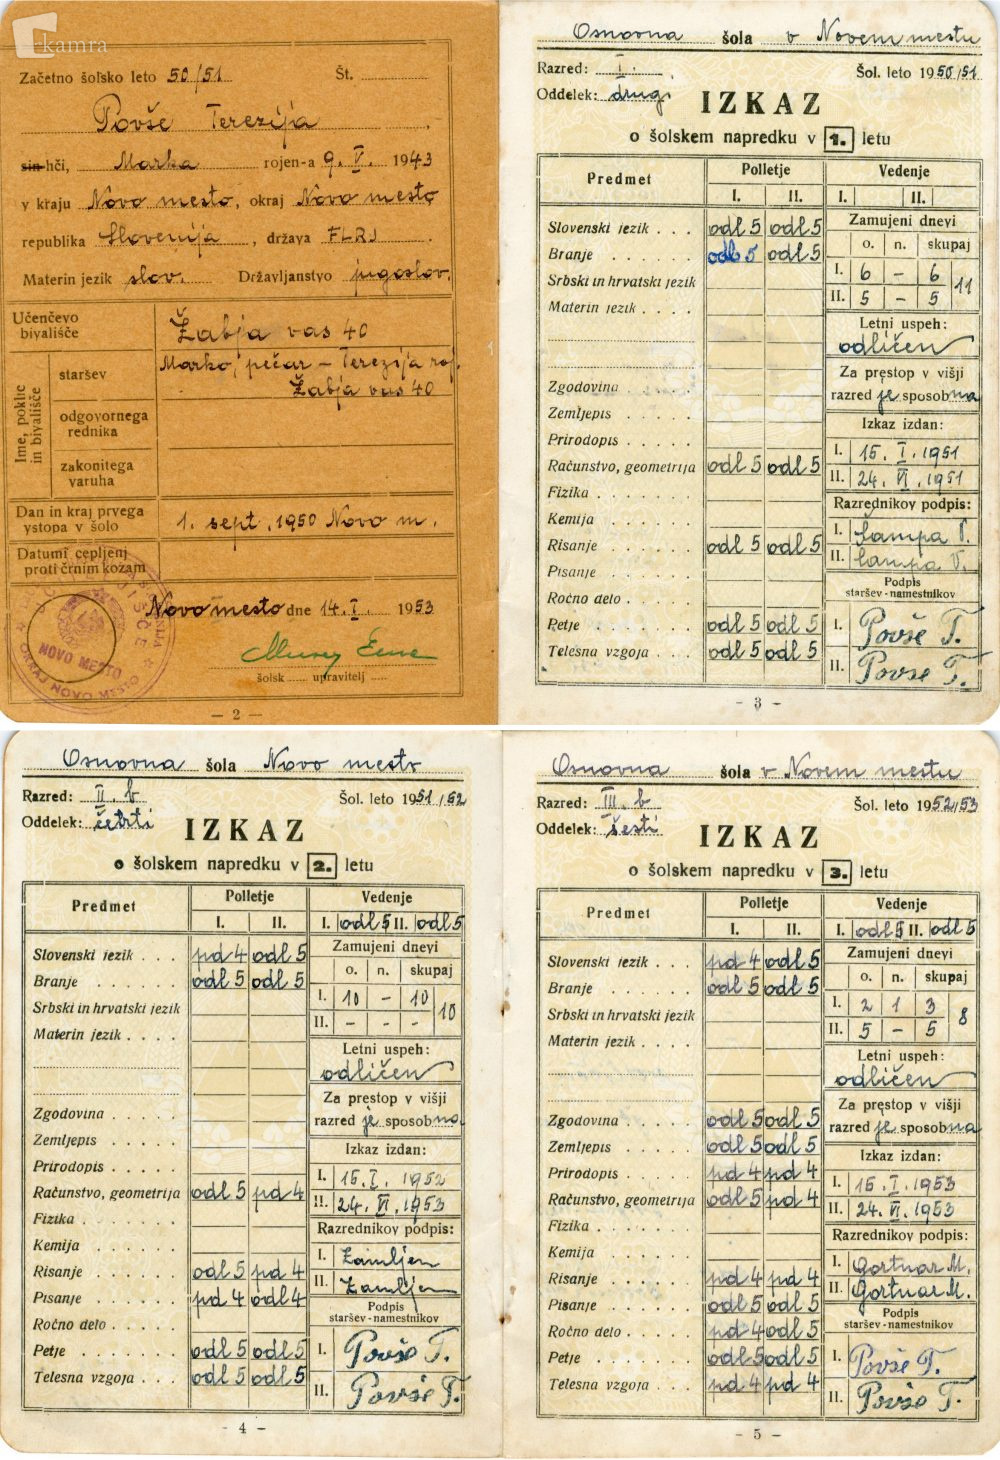 kamra
Začetno šolsko leto 50/51 Št.
Povše Terezija
sin-hči, Marka rojen-a 9. V. 1943
v kraju Novo mesto, okraj Novo mesto
republika Slovenija, država FLRJ
Materin jezik slov. Državljanstvo jugoslov.
Učenčevo bivališče Žabja vas 40
Ime, poklic in bivališče
staršev Marko, pečar - Terezija roj.
Žabja vas 40
odgovornega rednika
zakonitega varuha
Dan in kraj prvega vstopa v šolo 1. sept. 1950 Novo m.
Datumi cepljenj proti črnim kozam
Novo mesto dne 14. I. 1953
šolsk upravitelj
NOVO MESTO
OKRAJ NOVO MESTO
— 2 —
Osnovna šola v Novem mestu
Razred: I. Šol. leto 1950/51
Oddelek: drugi
IZKAZ
o šolskem napredku v 1. letu
Predmet Polletje Vedenje
I. II. I. II.
Slovenski jezik . . . odl 5 odl 5
Branje odl 5 odl 5
Srbski in hrvatski jezik
Materin jezik . . . .
Zgodovina
Zemljepis
Prirodopis
Računstvo, geometrija odl 5 odl 5
Fizika
Kemija
Risanje odl 5 odl 5
Pisanje
Ročno delo
Petje odl 5 odl 5
Telesna vzgoja . . . odl 5 odl 5
Zamujeni dnevi
o. n. skupaj
I. 6 - 6
II. 5 - 5
11
Letni uspeh:
odličen
Za prestop v višji
razred je sposobna
Izkaz izdan:
I. 15. I. 1951
II. 24. VI. 1951
Razrednikov podpis:
I. Šampa V.
II. Šampa V.
Podpis
staršev-namestnikov
I. Povše T.
II. Povše T.
- 3 -
Osnovna šola Novo mesto
Razred: II. b Šol. leto 1951/52
Oddelek: četrti
IZKAZ
o šolskem napredku v 2. letu
Predmet Polletje Vedenje
I. II. I. odl 5 II. odl 5
Slovenski jezik . . . pd 4 odl 5
Branje odl 5 odl 5
Srbski in hrvatski jezik
Materin jezik . . . .
Zgodovina
Zemljepis
Prirodopis
Računstvo, geometrija odl 5 pd 4
Fizika
Kemija
Risanje odl 5 pd 4
Pisanje pd 4 odl 4
Ročno delo
Petje odl 5 odl 5
Telesna vzgoja . . . odl 5 odl 5
Zamujeni dnevi
o. n. skupaj
I. 10 - 10
II. - - -
10
Letni uspeh:
odličen
Za prestop v višji
razred je sposobna
Izkaz izdan:
I. 15. I. 1952
II. 24. VI. 1953
Razrednikov podpis:
I.
II.
Podpis
staršev-namestnikov
I. Povše T.
II. Povše T.
- 4 -
Osnovna šola v Novem mestu
Razred: III. b Šol. leto 1952/53
Oddelek: šesti
IZKAZ
o šolskem napredku v 3. letu
Predmet Polletje Vedenje
I. II. I. odl 5 II. odl 5
Slovenski jezik . . . pd 4 odl 5
Branje odl 5 odl 5
Srbski in hrvatski jezik
Materin jezik . . . .
Zgodovina odl 5 odl 5
Zemljepis odl 5 odl 5
Prirodopis pd 4 pd 4
Računstvo, geometrija odl 5 pd 4
Fizika
Kemija
Risanje pd 4 pd 4
Pisanje odl 5 odl 5
Ročno delo pd 4 odl 5
Petje odl 5 odl 5
Telesna vzgoja . . . pd 4 pd 4
Zamujeni dnevi
o. n. skupaj
I. 2 1 3
II. 5 - 5
8
Letni uspeh:
odličen
Za prestop v višji
razred je sposobna
Izkaz izdan:
I. 15. I. 1953
II. 24. VI. 1953
Razrednikov podpis:
I. Gortnar M.
II. Gortnar M.
Podpis
staršev-namestnikov
I. Povše T.
II. Povše T.
- 5 -